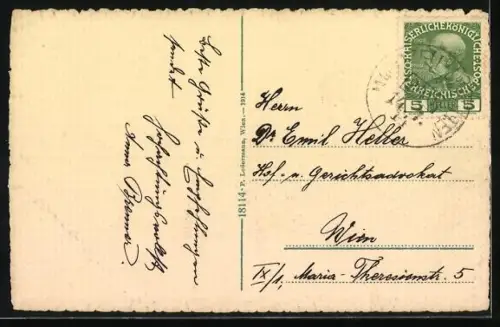 Beste Grüße u. Empfehlungen
sendet
Hochachtungsvollst
Anna Brenner.
18114 · P. Ledermann, Wien. — 1914
KAISERLICHE KÖNIGLICHE
ÖSTERREICHISCHE
5 5
Herrn
Dr Emil Heller
Hof- u. Gerichtsadvokat
Wien
IX/1, Maria-Theresienstr. 5